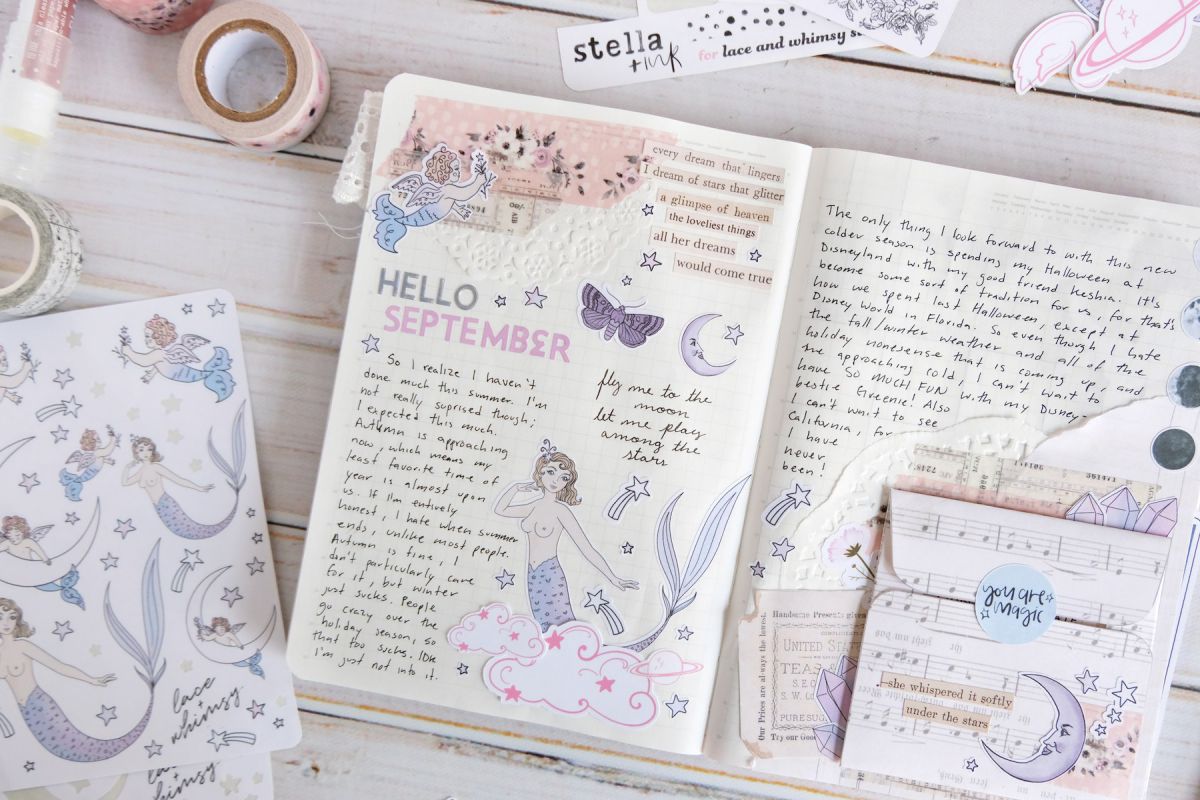 stella
+ink
for lace and whimsy
every dream that lingers
I dream of stars that glitter
a glimpse of heaven
the loveliest things
all her dreams
would come true
HELLO
SEPTEMBER
So I realize I haven't
done much this summer. I'm
not really suprised though;
I expected this much.
Autumn is approaching
now, which means my
least favorite time of
year is almost upon
us. If I'm entirely
honest, I hate when summer
ends, unlike most people.
Autumn is fine, I
don't particularly care
for it, but winter
just sucks. People
go crazy over the
holiday season, so
that too sucks. IDK
I'm just not into it.
fly me to the
moon
let me play
among the
stars
The only thing I look forward to with this new
colder season is spending my Halloween at
Disneyland with my good friend Keshia. It's
become some sort of tradition for us, for that's
how we spent last Halloween, except at
Disney World in Florida. So even though I hate
the fall/winter weather and all of the
holiday nonsense that is coming up, and
the approaching cold, I can't wait to
have SO MUCH FUN with my Disney-
bestie Greenie! Also
I can't wait to see
California, for
I have
never
been!
you are
magic
Handsome Presents given
Our Prices are always the lowest.
UNITED STAT
TEAS
S. W. Co
PURE SUG
Try our Goo
she whispered it softly
under the stars
lace
+
whimsy